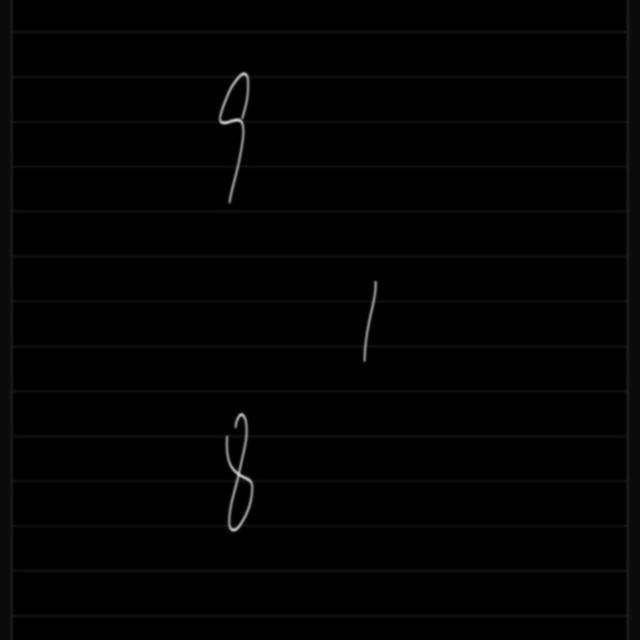 9
1
8